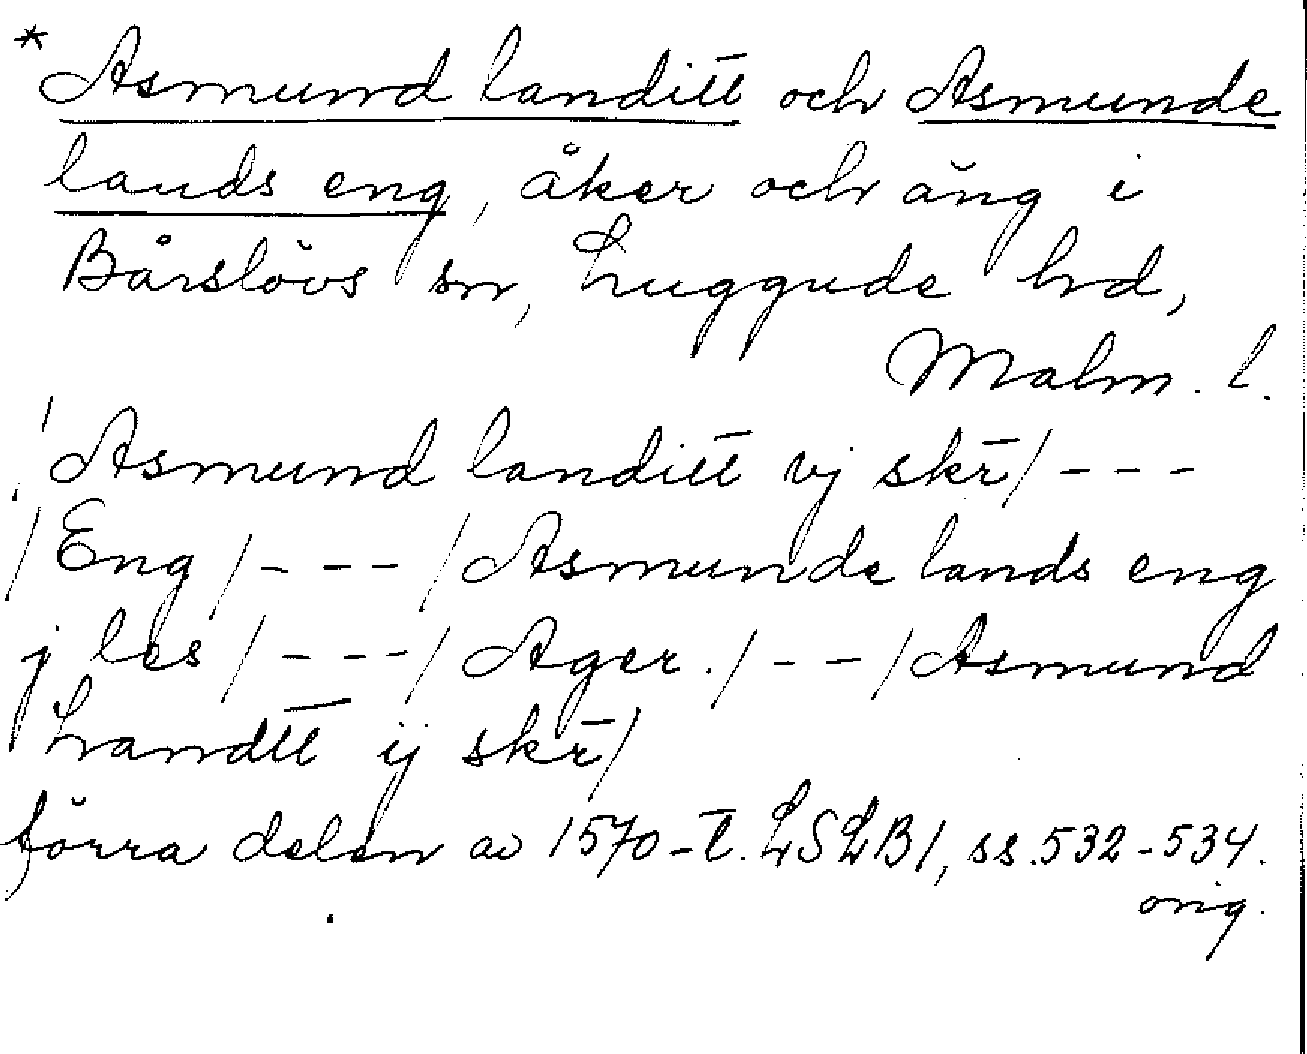 *Asmund landitt̄ och Asmunde
lands eng, åker och äng i
Bårslövs sn, Luggude hd,
Malm. l.
Asmund landitt̄ vj skr̄/---
/Eng/---/Asmunde lands eng
j les/---/Ager./---/Asmund
Landtt̄ ij skr̄/
förra delen av 1570-t. LSLB1, ss. 532-534.
orig.